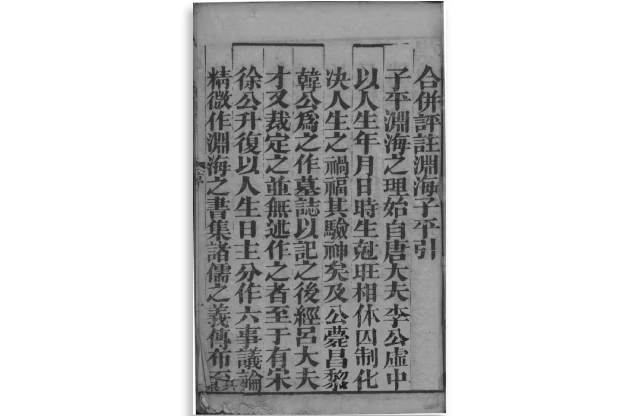 合併評註淵海子平引
子平淵海之理始自唐大夫李公虛中
以人生年月日時生剋旺相休囚制化
决人生之禍福其驗神矣及公薨昌黎
韓公爲之作墓誌以記之後經呂大夫
才又裁定之並無述作之者至于有宋
徐公升復以人生日主分作六事議論
精微作淵海之書集諸儒之義傳布至